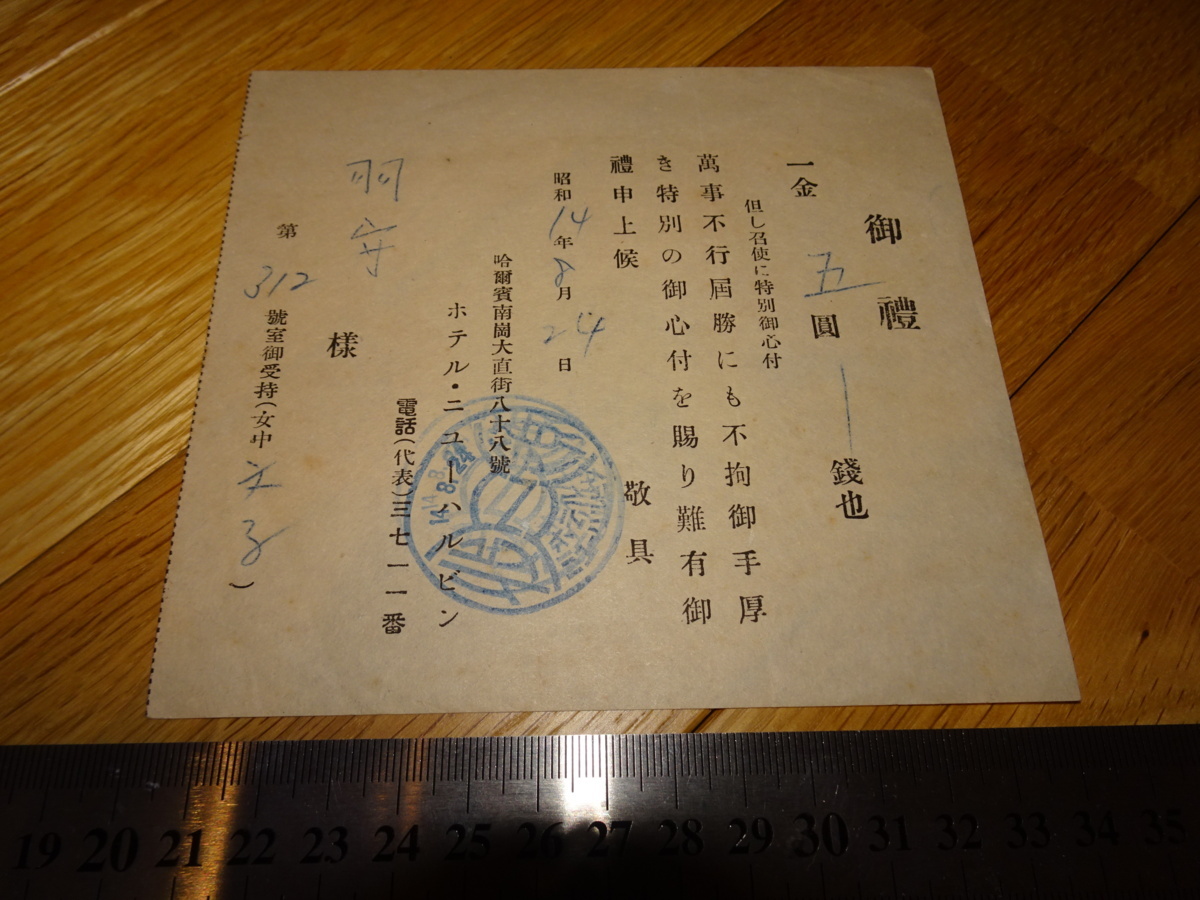 御禮
一金五圓 錢也
但し召使に特別御心付
萬事不行屆勝にも不拘御手厚
き特別の御心付を賜り難有御
禮申上候 敬具
昭和14年8月24日
哈爾賓南崗大直街八十八號
ホテル・ニューハルビン
電話(代表)三七一一番
羽守 様
第312號室御受持(女中 子)
14.8.24
19 20 21 22 23 24 25 26 27 28 29 30 31 32 33 34 35